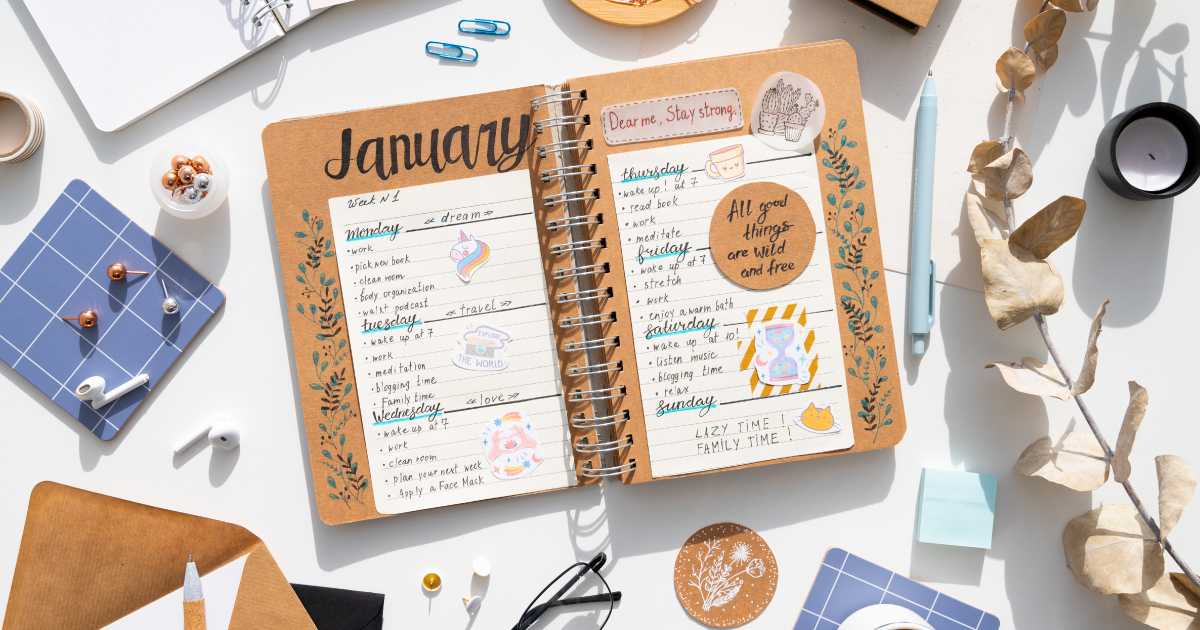 January
Week N1
Monday
« dream »
• work
• pick new book
• clean room
• body organization
• walk+ podcast
tuesday
« travel »
• wake up at 7
EXPLORE
THE WORLD
• work
• meditation
• blogging time
• Family time
Wednesday
« love »
• wake up at 7
• work
• clean room
• plan your next week
• Apply a Face Mack
Dear me, Stay strong.
thursday
• wake up! at 7
• read book
• work
• meditate
All good
things
are wild
and free
friday
• wake up at 7
• stretch
• work
• enjoy a warm bath
saturday
• wake up at 10!
• listen music
• blogging time
• relax
sunday
LAZY TIME !
FAMILY TIME !